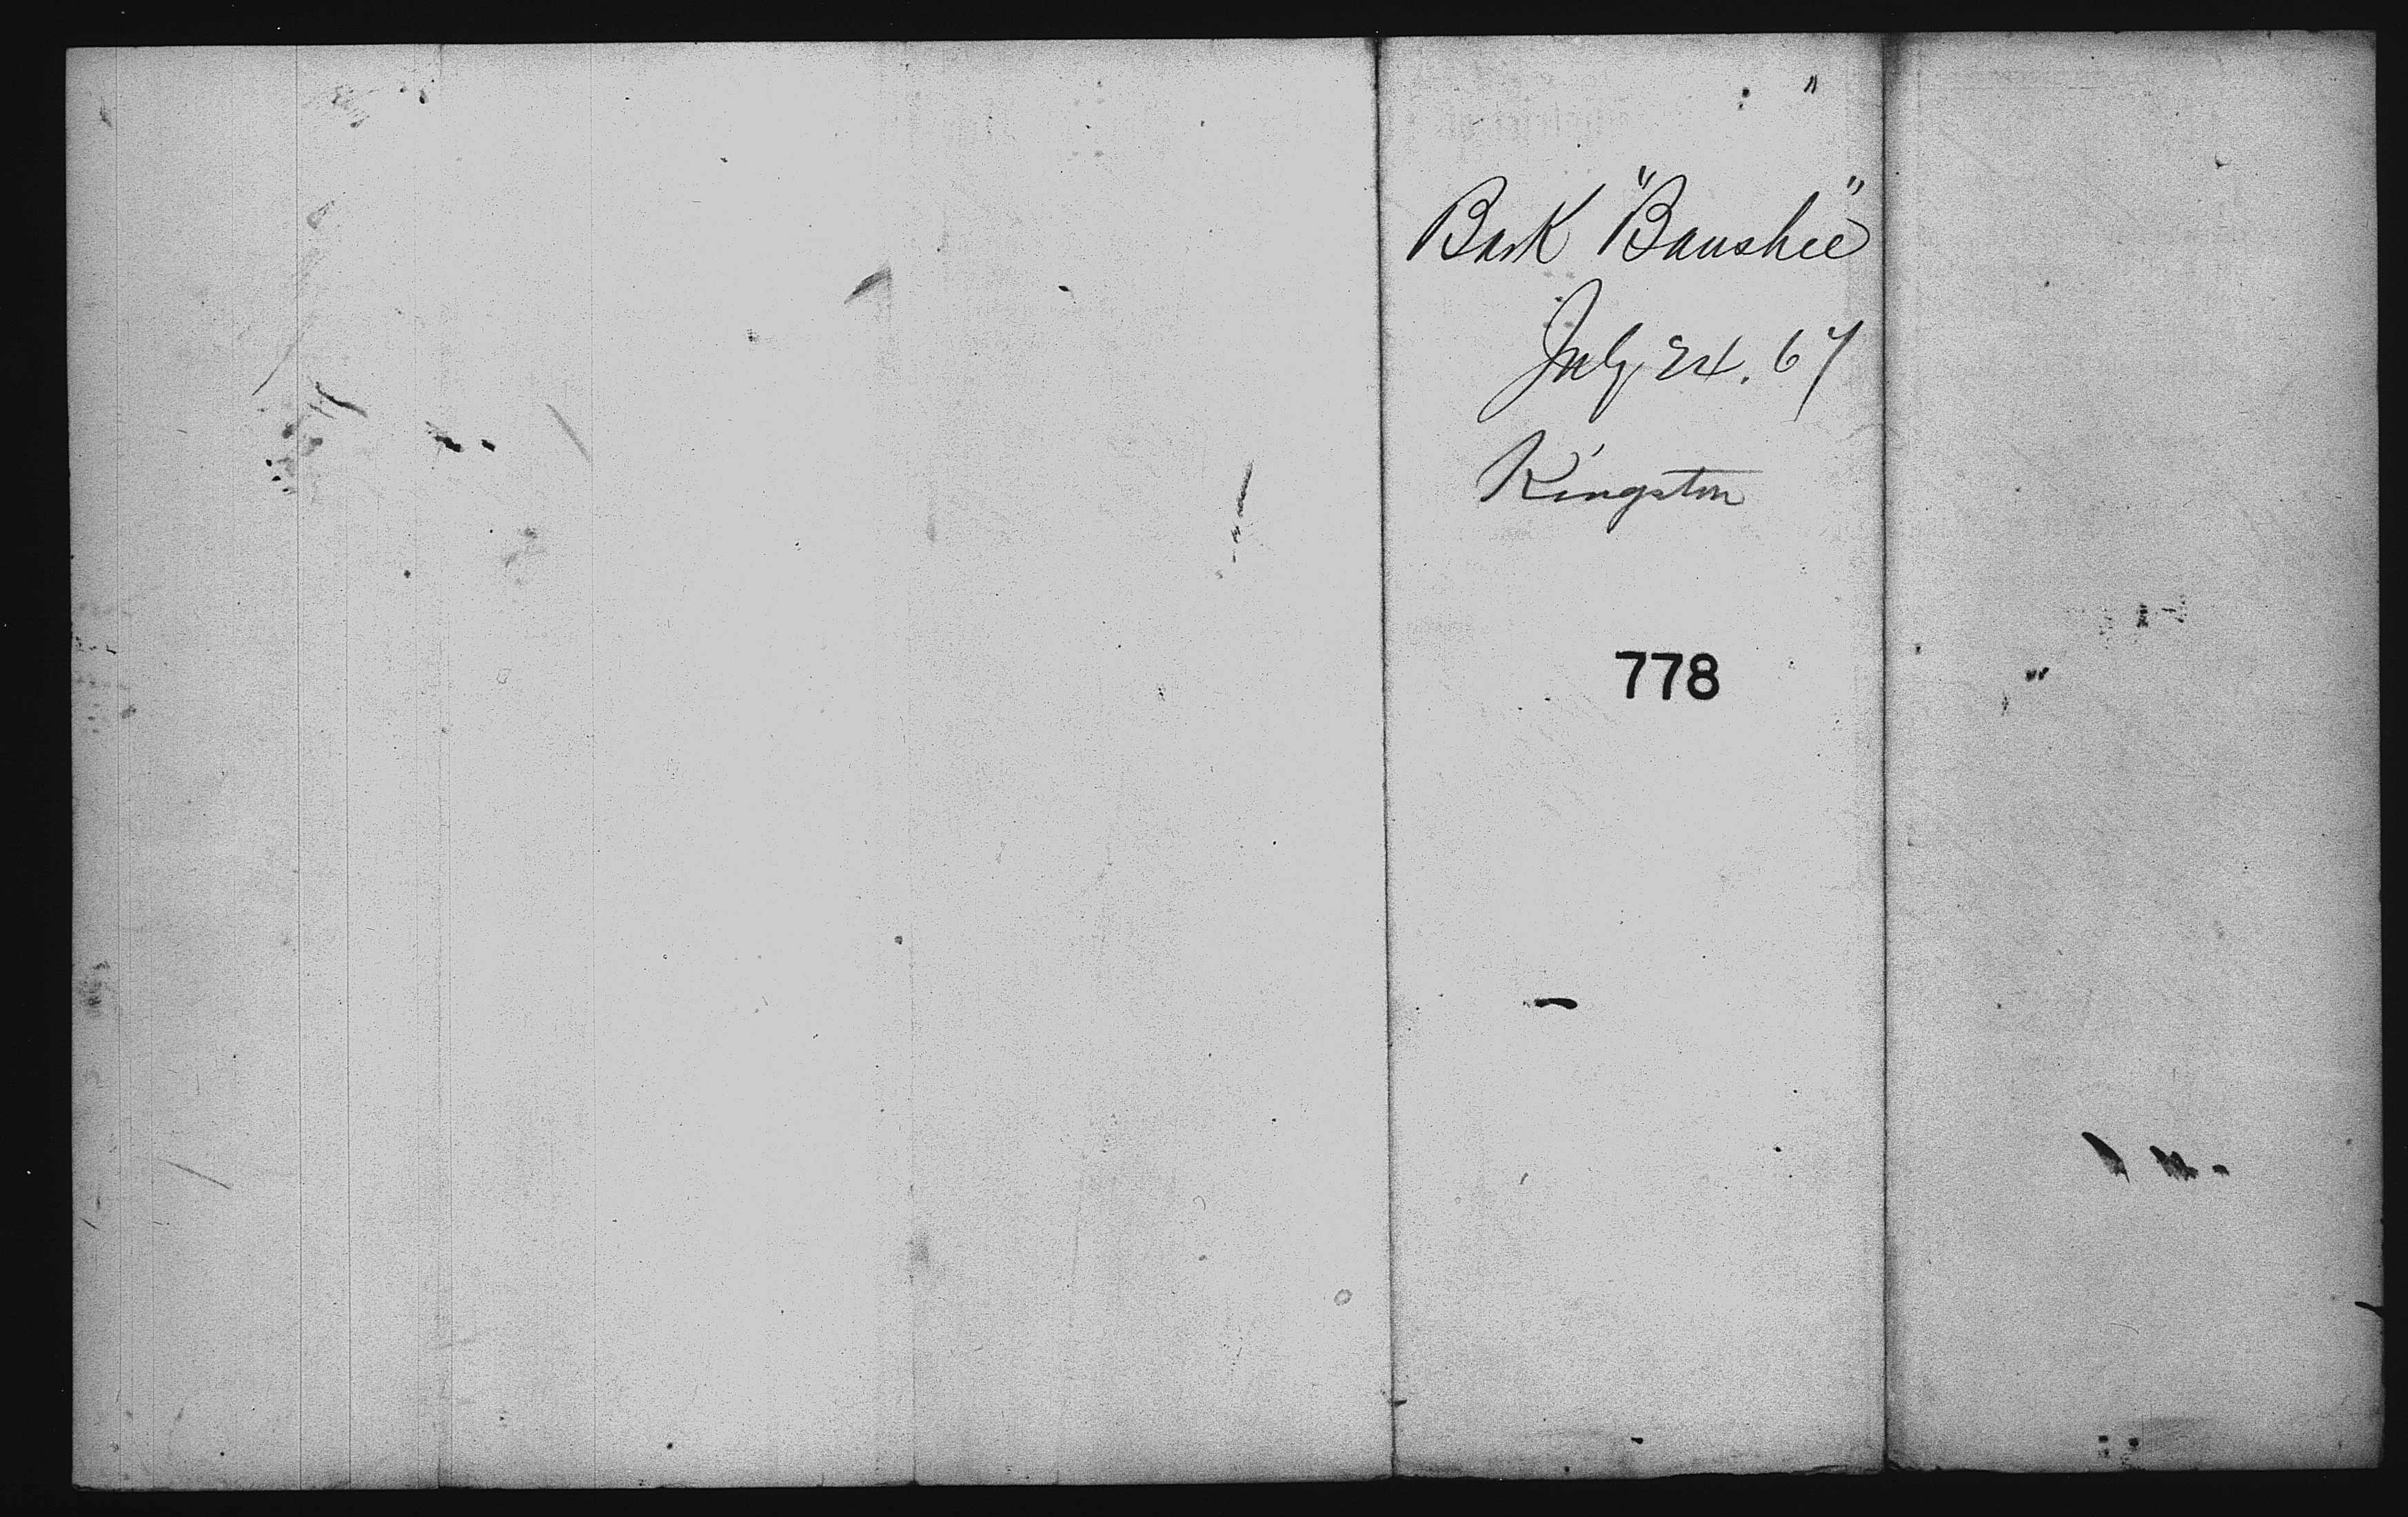 Bark "Banshee"
July 24. 67
Kingston
778